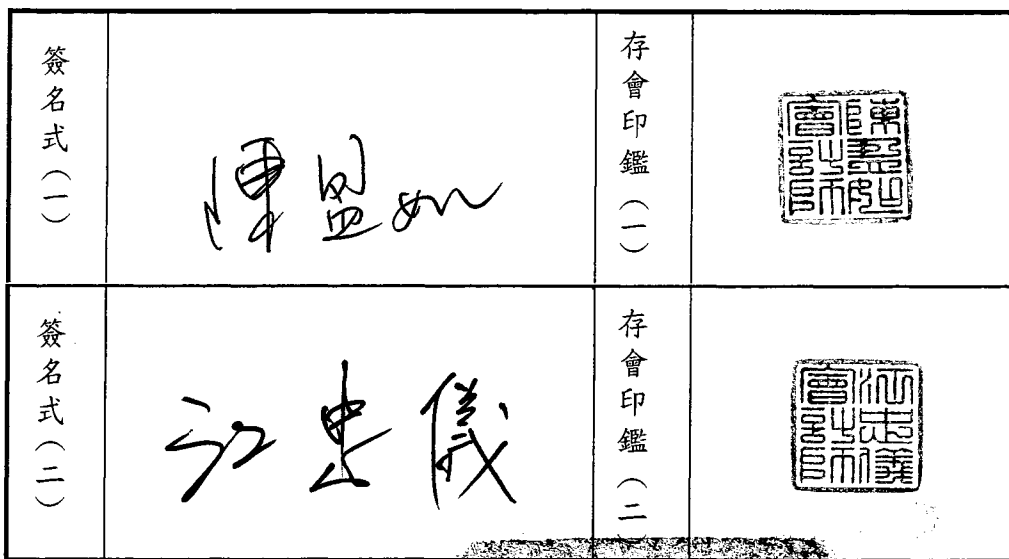 簽名式(一)
陳盈如
存會印鑑(一)
陳盈如
會計師
簽名式(二)
江忠儀
存會印鑑(二
江忠儀
會計師